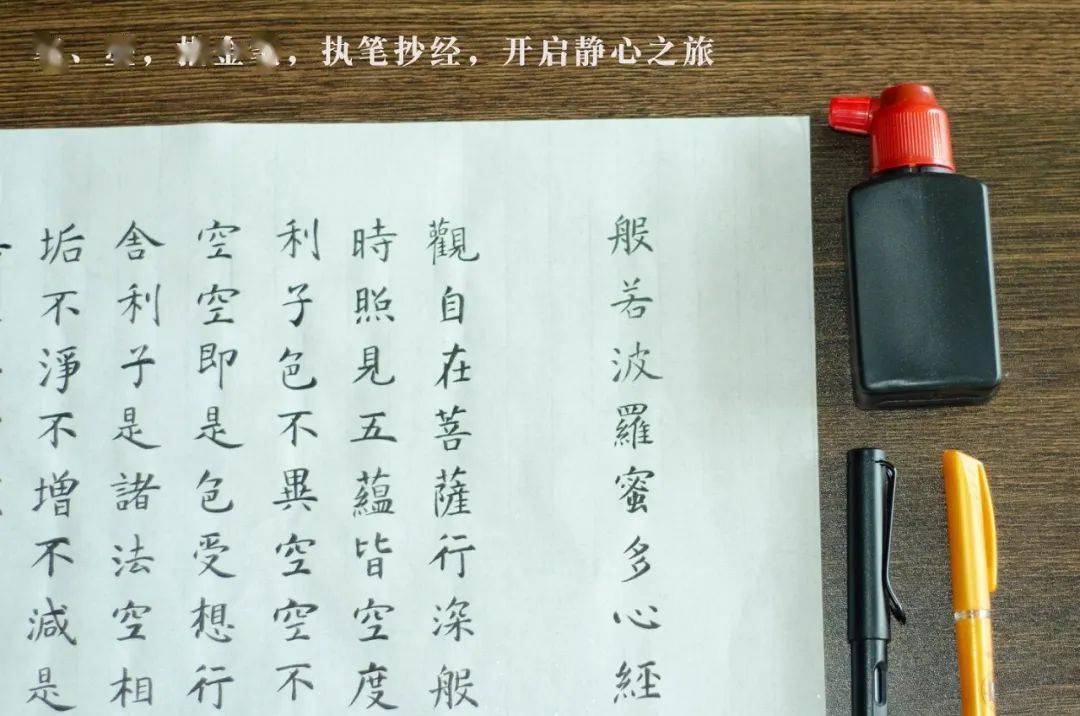 金，执笔抄经，开启静心之旅
般若波羅蜜多心經
觀自在菩薩行深般
時照見五蘊皆空度
利子色不異空空不
空空即是色受想行
舍利子是諸法空相
垢不淨不增不減是